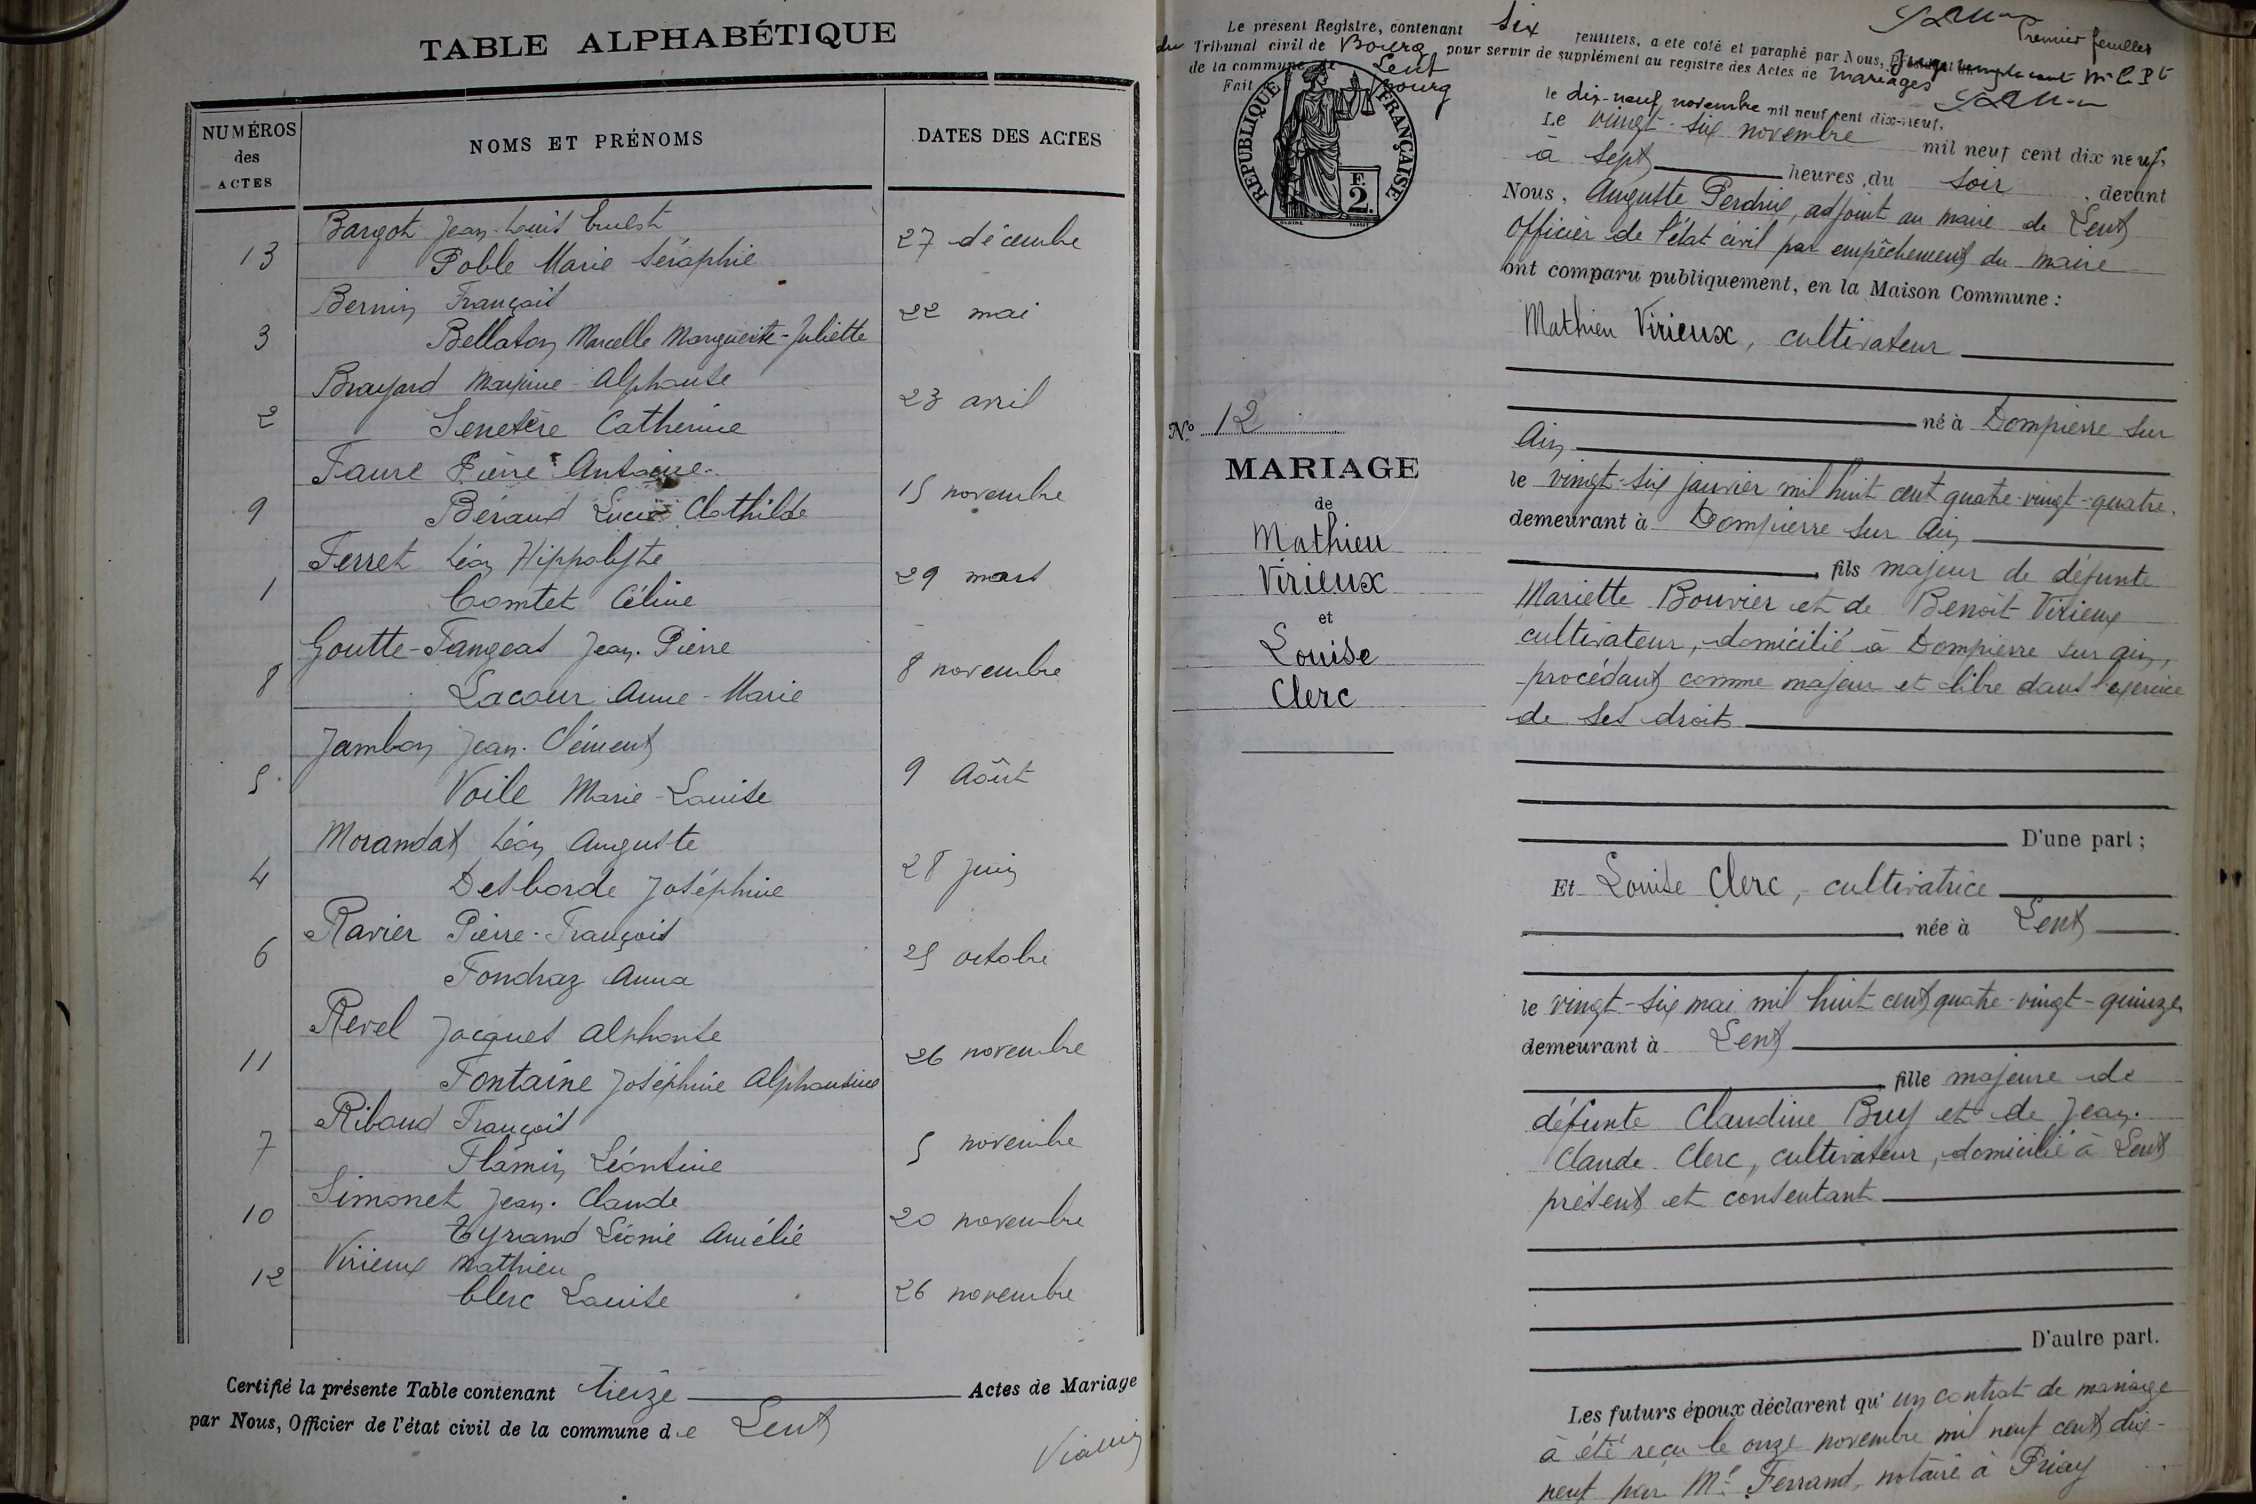 TABLE ALPHABÉTIQUE
NUMÉROS
des
ACTES
NOMS ET PRÉNOMS
DATES DES ACTES
Bargot Jean-Louis Ernest
13 Poble Marie Séraphie 27 décembre
Bernin François
3 Bellaton Marcelle Marguerite-Juliette 22 mai
Brayard Maxime Alphonse
2 Senetère Catherine 23 avril
Faure Pierre Antoine
9 Béraud Lucie Clothilde 15 novembre
Ferret Léon Hippolyte
1 Comtet Céline 29 mars
Goutte-Fangeas Jean-Pierre
8 Lacour Anne-Marie 8 novembre
Jambon Jean-Clément
5 Voile Marie-Louise 9 Août
Morandat Léon Auguste
4 Desborde Joséphine 28 juin
Ravier Pierre-François
6 Fondraz Anna 25 octobre
Revel Jacques Alphonse
11 Fontaine Joséphine Alphonsine 26 novembre
Ribaud François
7 Flamin Léontine 5 novembre
Simonet Jean-Claude
10 Tyrand Léonie Amélie 20 novembre
Virieux Mathieu
12 Clerc Louise 26 novembre
Certifié la présente Table contenant treize Actes de Mariage
par Nous, Officier de l'état civil de la commune de Lent
Le présent Registre, contenant six feuillets, a été coté et paraphé par Nous,
Premier feuillet
du Tribunal civil de Bourg pour servir de supplément au registre des Actes de Mariages
de la commune de Lent
Fait Bourg le dix-neuf novembre mil neuf cent dix-neuf.
RÉPUBLIQUE FRANÇAISE
F.
2.
Nº 12
MARIAGE
de
Mathieu
Virieux
et
Louise
Clerc
Le vingt-six novembre mil neuf cent dix neuf,
à sept heures du soir, devant
Nous, Auguste Perdrix, adjoint au maire de Lent
Officier de l'état civil par empêchement du maire
ont comparu publiquement, en la Maison Commune :
Mathieu Virieux, cultivateur
né à Dompierre sur
Ain
le vingt-six janvier mil huit cent quatre-vingt-quatre.
demeurant à Dompierre sur Ain
fils majeur de défunte
Mariette Bouvier et de Benoît Virieux
cultivateur, domicilié à Dompierre sur ain,
procédant comme majeur et libre dans l'exercice
de ses droits
D'une part ;
Et Louise Clerc, cultivatrice
née à Lent
le vingt-six mai mil huit cent quatre-vingt-quinze
demeurant à Lent
fille majeure de
défunte Claudine Buy et de Jean-
Claude Clerc, cultivateur, domicilié à Lent
présent et consentant
D'autre part.
Les futurs époux déclarent qu'un contrat de mariage
à été reçu le onze novembre mil neuf cent dix-
neuf par Me Ferrand, notaire à Priay